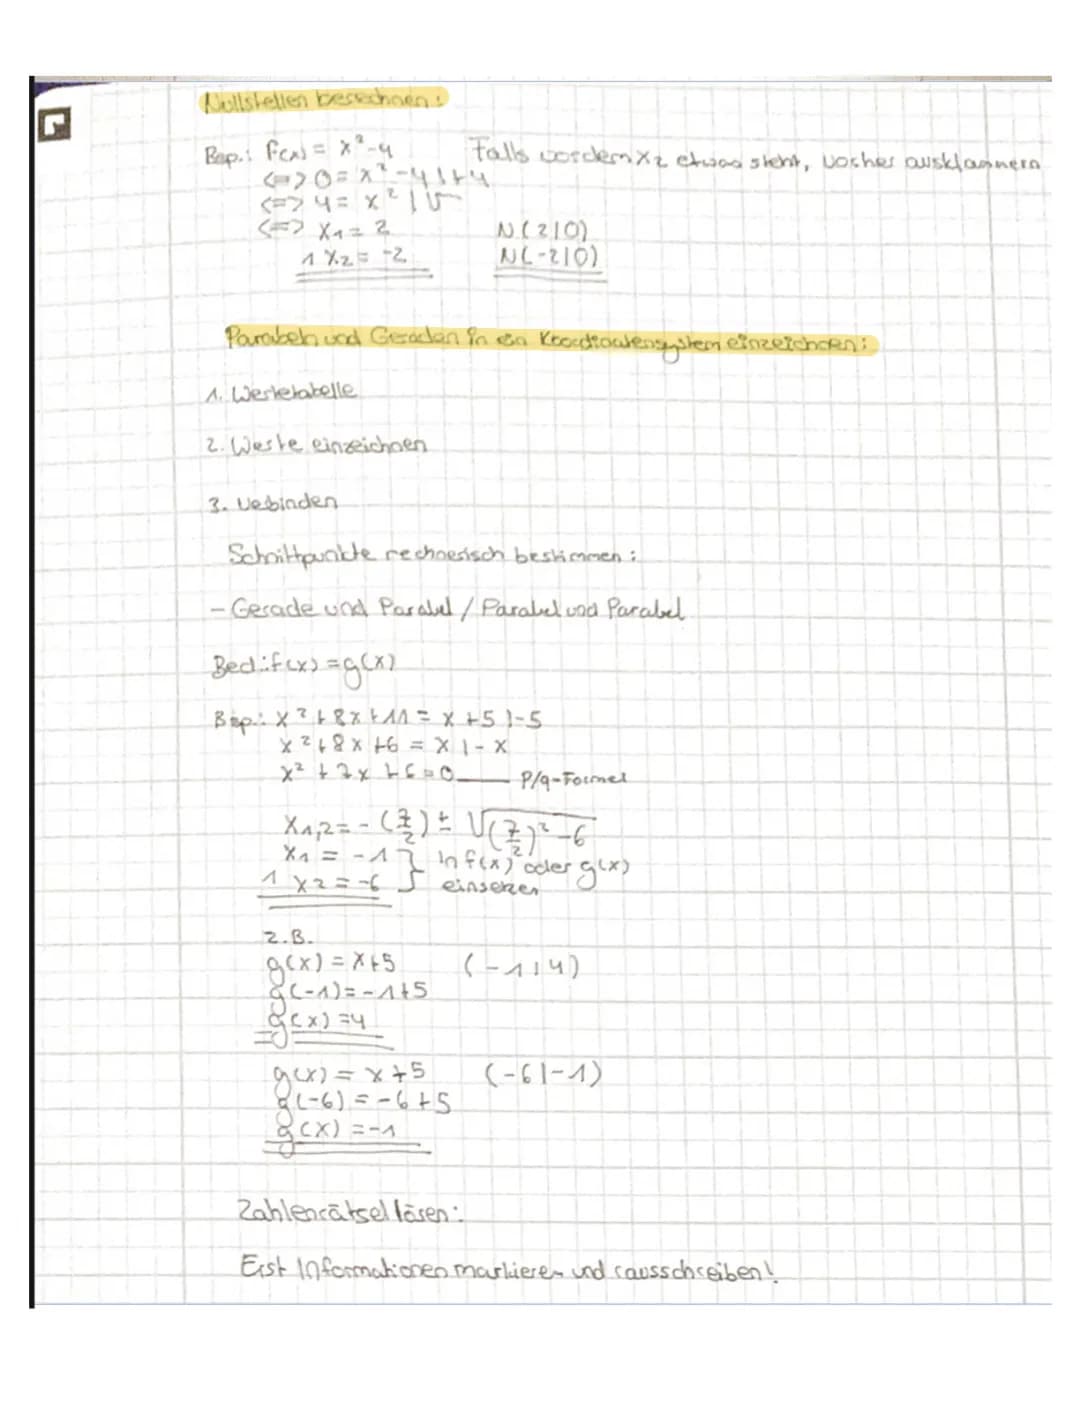 Nullstellen berechnen:
Bsp.: f(x) = x²-4 Falls vor dem x2 etwas steht, vorher ausklammern
<=> 0 = x²-4 |+4
<=> 4 = x² |√
<=> x1 = 2 N(2|0)
∧ x2 = -2 N(-2|0)
Parabeln und Geraden in ein Koordinatensystem einzeichnen:
1. Wertetabelle
2. Werte einzeichnen
3. Verbinden
Schnittpunkte rechnerisch bestimmen:
- Gerade und Parabel / Parabel und Parabel
Bed.: f(x) = g(x)
Bsp.: x²+8x+11 = x+5 |-5
x²+8x+6 = x |-x
x²+7x+6=0 P/q-Formel
x1,2 = -(7/2) ± √((7/2)²-6
x1 = -1 } In f(x) oder g(x)
∧ x2 = -6 } einsetzen
z.B.
g(x) = x+5 (-1|4)
g(-1) = -1+5
g(x) = 4
g(x) = x+5 (-6|-1)
g(-6) = -6+5
g(x) = -1
Zahlenrätsel lösen:
Erst Informationen markieren und rausschreiben!